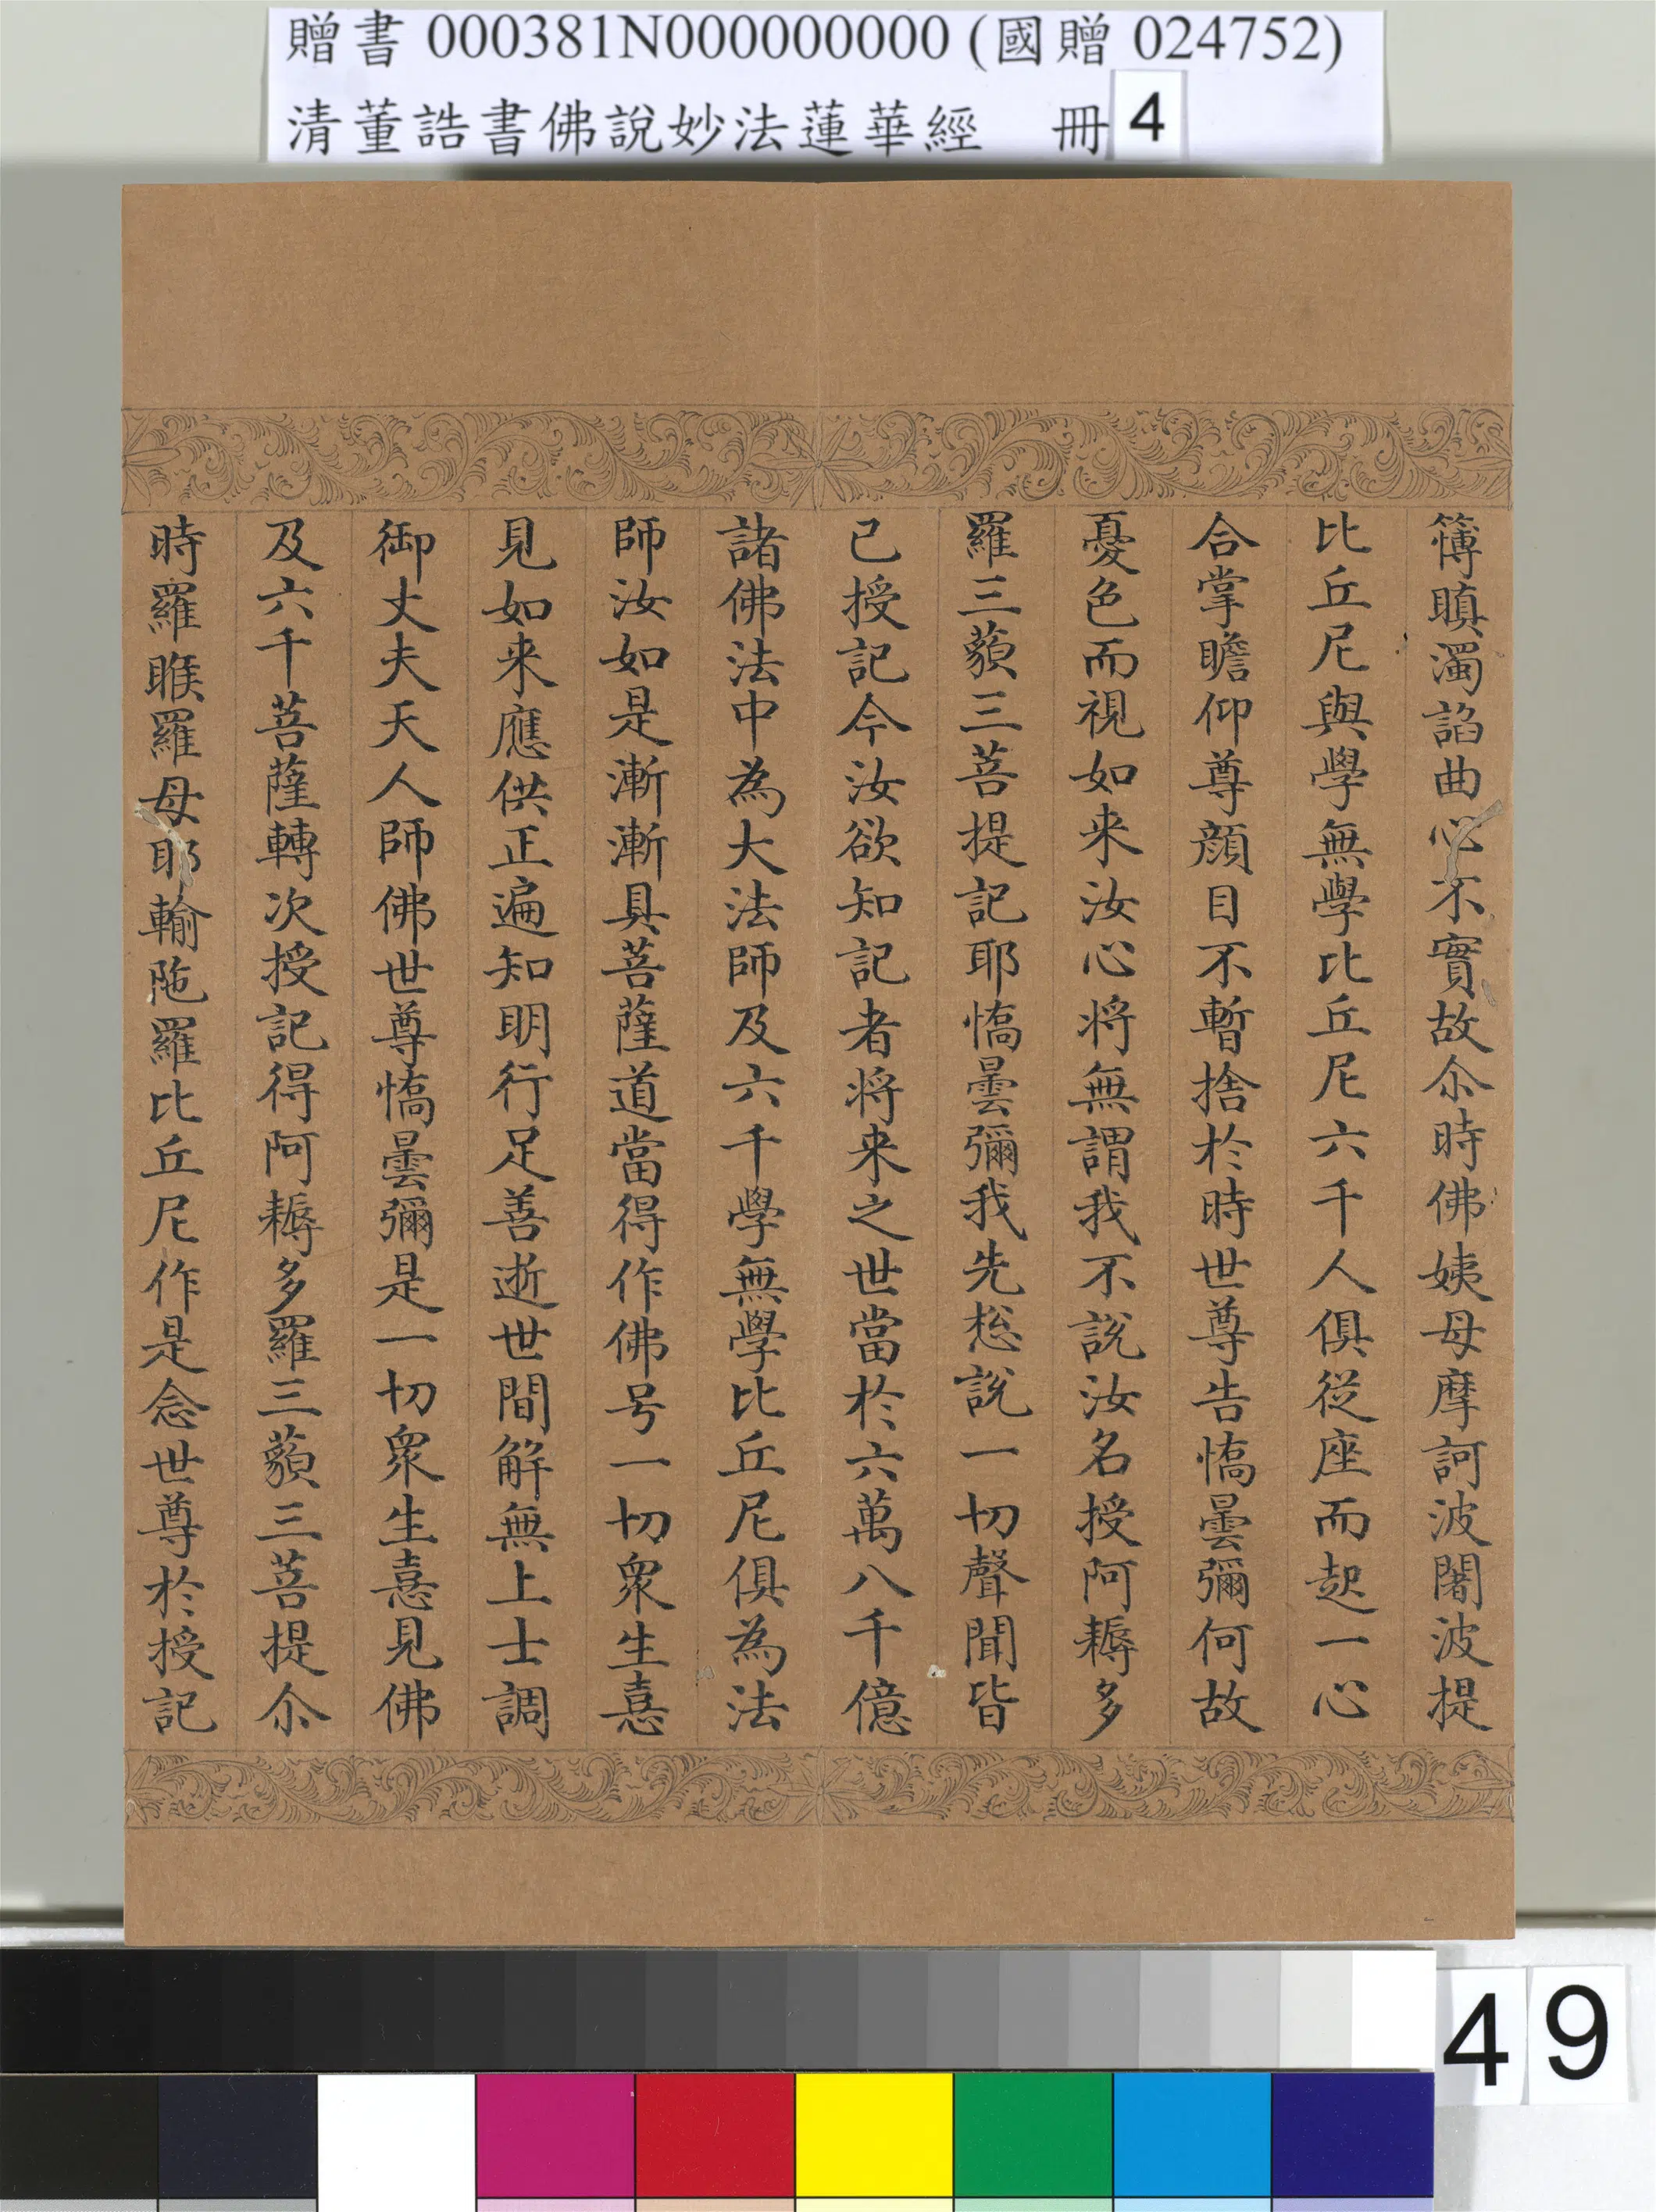 贈書 000381N000000000 (國贈 024752)
清董誥書佛說妙法蓮華經 冊 4
簿瞋濁諂曲心不實故尒時佛姨母摩訶波闍波提
比丘尼與學無學比丘尼六千人俱從座而起一心
合掌瞻仰尊顏目不暫捨於時世尊告憍曇彌何故
憂色而視如来汝心将無謂我不說汝名授阿耨多
羅三藐三菩提記耶憍曇彌我先㧾說一切聲聞皆
已授記今汝欲知記者将来之世當於六萬八千億
諸佛法中為大法師及六千學無學比丘尼俱為法
師汝如是漸漸具菩薩道當得作佛号一切衆生憙
見如来應供正遍知明行足善逝世間解無上士調
御丈夫天人師佛世尊憍曇彌是一切衆生憙見佛
及六千菩薩轉次授記得阿耨多羅三藐三菩提尒
時羅睺羅母耶輸陁羅比丘尼作是念世尊於授記
49